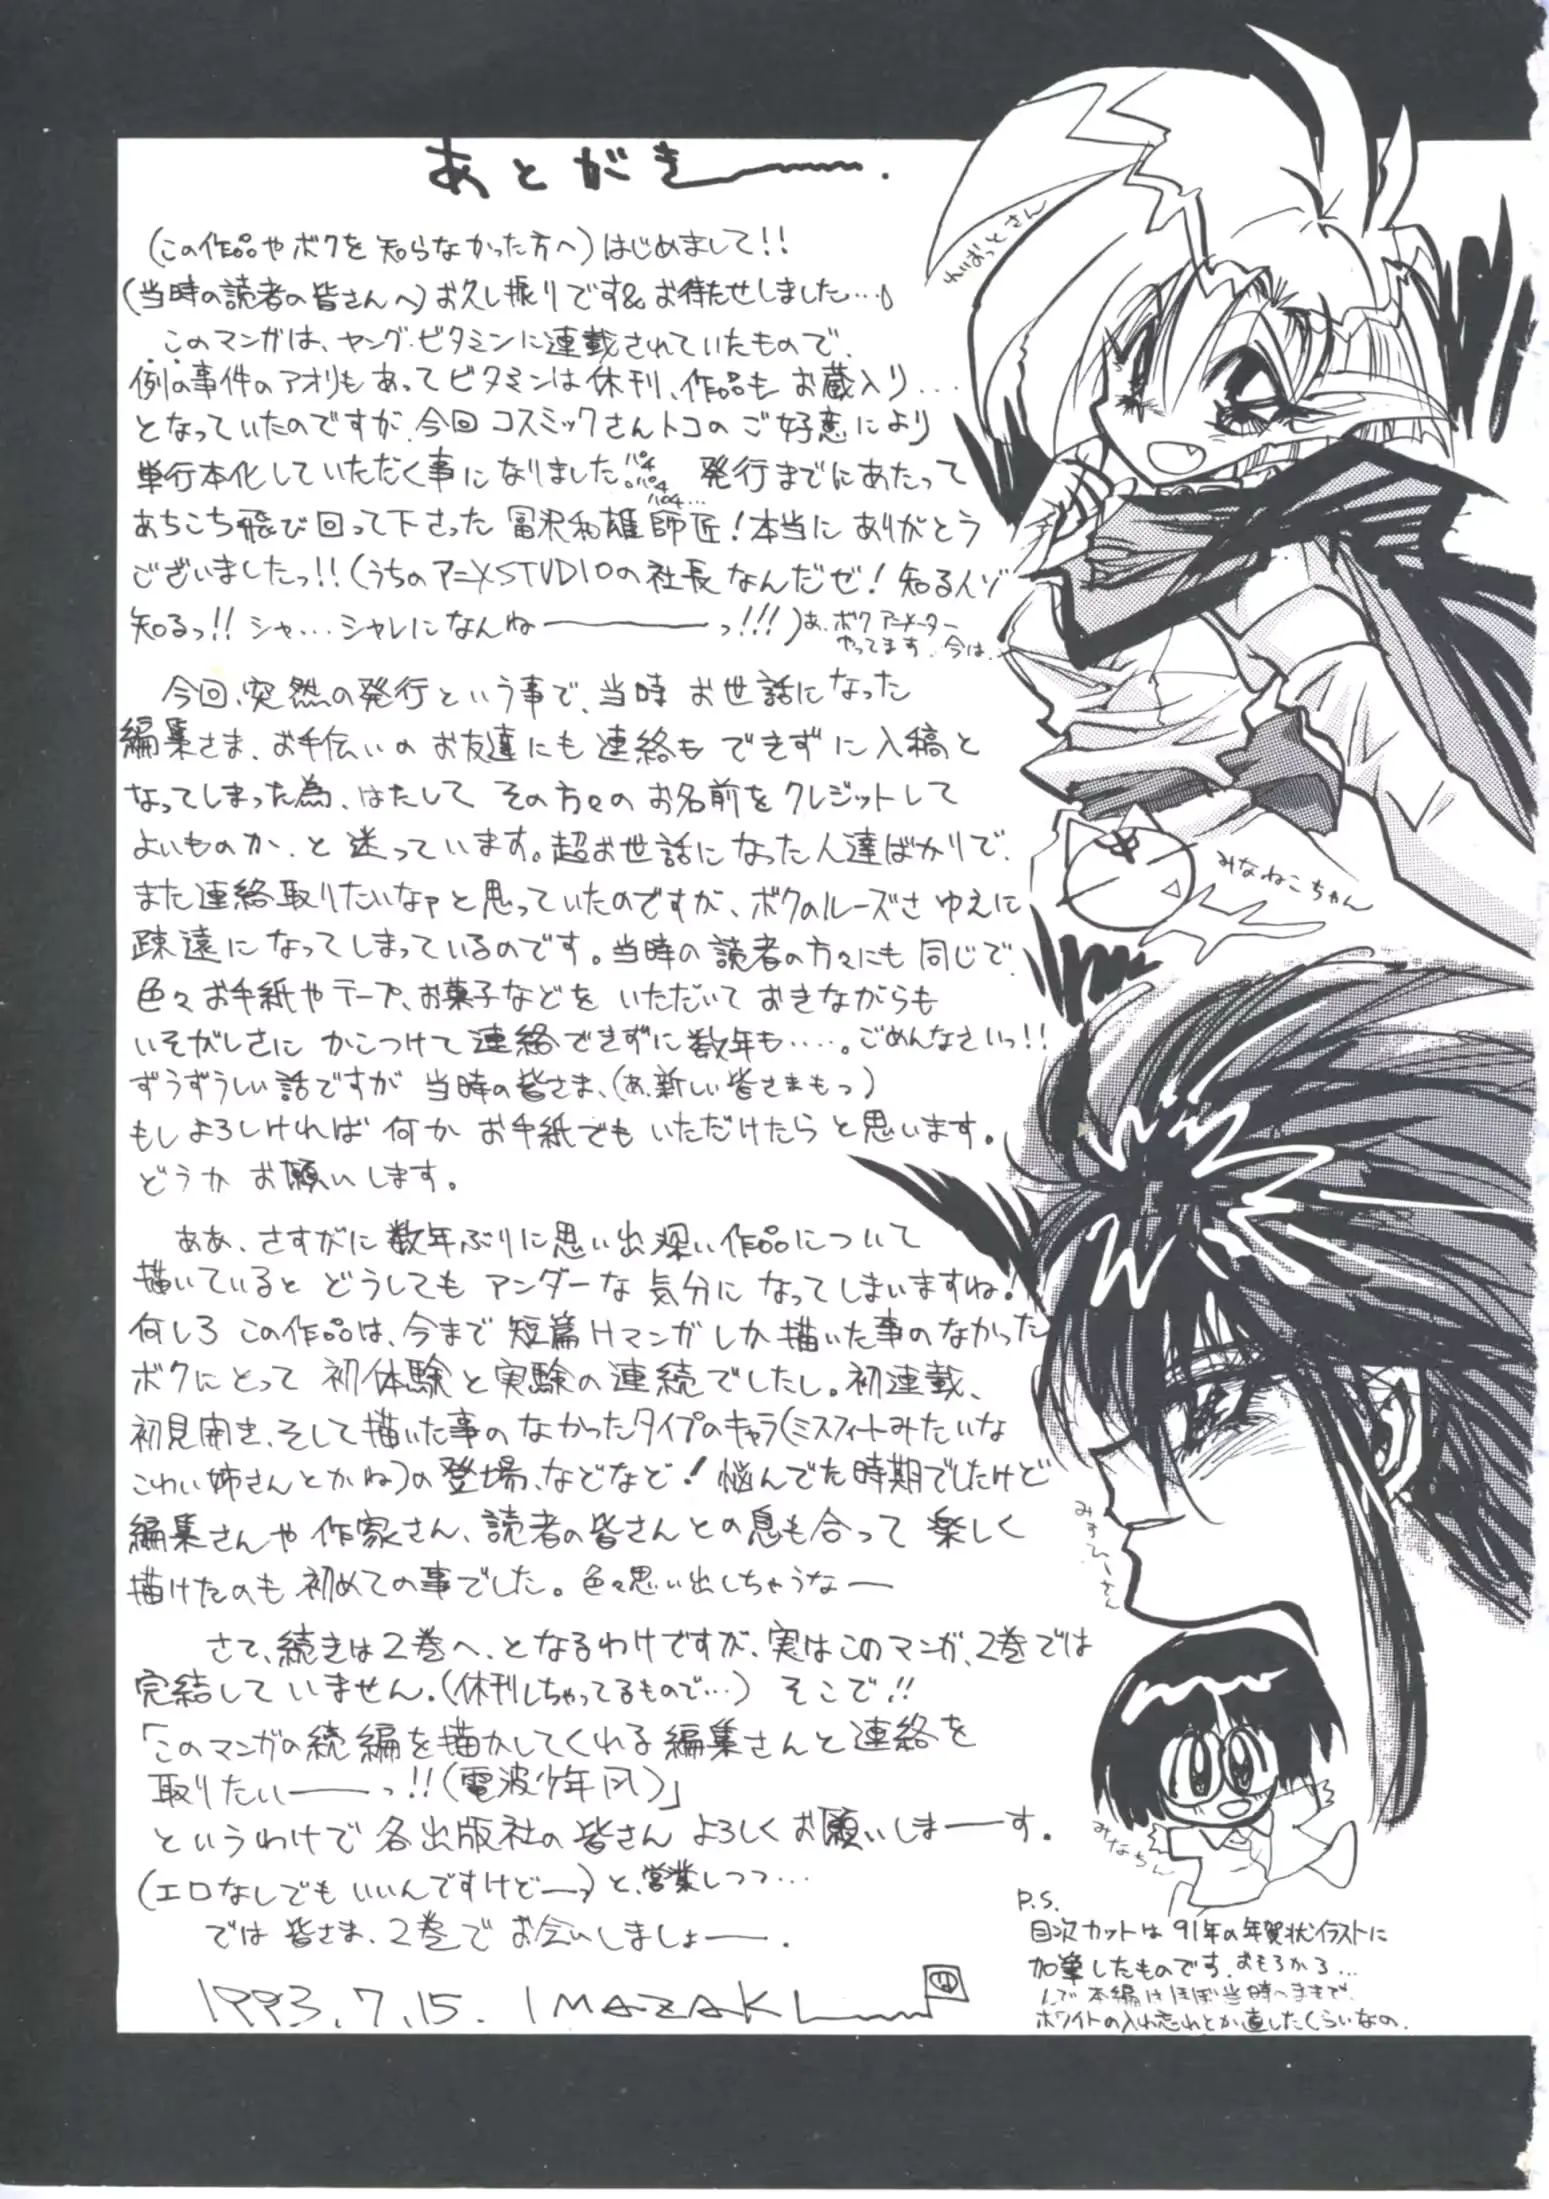 あとがきーーー.
(この作品やボクを知らなかった方へ)はじめまして!!
(当時の読者の皆さんへ)お久し振りです&お待たせしました…。
このマンガは、ヤング・ビタミンに連載されていたもので、
例の事件のアオリもあってビタミンは休刊、作品もお蔵入り…
となっていたのですが、今回コスミックさんトコのご好意により
単行本化していただく事になりました。パチパチパチ… 発行までにあたって
あちこち飛び回って下さった冨沢和雄師匠!本当にありがとう
ございましたっ!!(うちのアニメSTUDIOの社長なんだぜ!知る人ゾ
知るっ!! シャ…シャレになんねーーーっ!!!)あ、ボクアニメーター
やってます。今は。
今回、突然の発行という事で、当時お世話になった
編集さま、お手伝いのお友達にも連絡もできずに入稿と
なってしまった為、はたしてその方々のお名前をクレジットして
よいものか、と迷っています。超お世話になった人達ばかりで、
また連絡取りたいなァと思っていたのですが、ボクのルーズさゆえに
疎遠になってしまっているのです。当時の読者の方々にも同じで、
色々お手紙やテープ、お菓子などをいただいておきながらも
いそがしさにかこつけて連絡できずに数年も……。ごめんなさいっ!!
ずうずうしい話ですが当時の皆さま、(あ、新しい皆さまもっ)
もしよろしければ何かお手紙でもいただけたらと思います。
どうかお願いします。
ああ、さすがに数年ぶりに思い出深い作品について
描いているとどうしてもアンダーな気分になってしまいますね!
何しろこの作品は、今まで短篇Hマンガしか描いた事のなかった
ボクにとって初体験と実験の連続でしたし。初連載、
初見開き、そして描いた事のなかったタイプのキャラ(ミスフィートみたいな
こわい姉さんとかね)の登場、などなど!悩んでた時期でしたけど
編集さんや作家さん、読者の皆さんとの息も合って楽しく
描けたのも初めての事でした。色々思い出しちゃうなー
さて、続きは2巻へ、となるわけですが、実はこのマンガ、2巻では
完結していません。(休刊しちゃってるもので…) そこで!!
「このマンガの続編を描かしてくれる編集さんと連絡を
取りたいーーっ!!(電波少年風)」
というわけで各出版社の皆さんよろしくお願いしまーーす.
(エロなしでもいいんですけどーっ)と、営業しつつ…
では皆さま、2巻でお会いしましょーー.
1993.7.15. IMAZAKI
れいばっとさん
みなねこちゃん
みすひーさん
みなちん
P.S.
目次カットは91年の年賀状イラストに
加筆したものです。おもろかろ…
んで本編はほぼ当時のままで、
ホワイトの入れ忘れとか直したくらいなの.